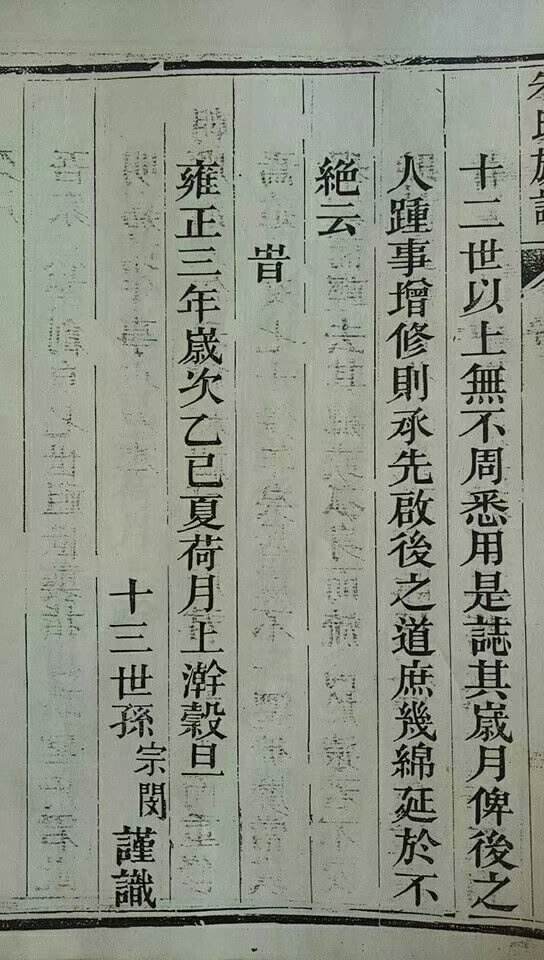 氏族譜
十二世以上無不周悉用是誌其歲月俾後之
人踵事增修則承先啟後之道庶幾綿延於不
絶云
旹
雍正三年歲次乙巳夏荷月上澣穀旦
十三世孫宗閔謹識